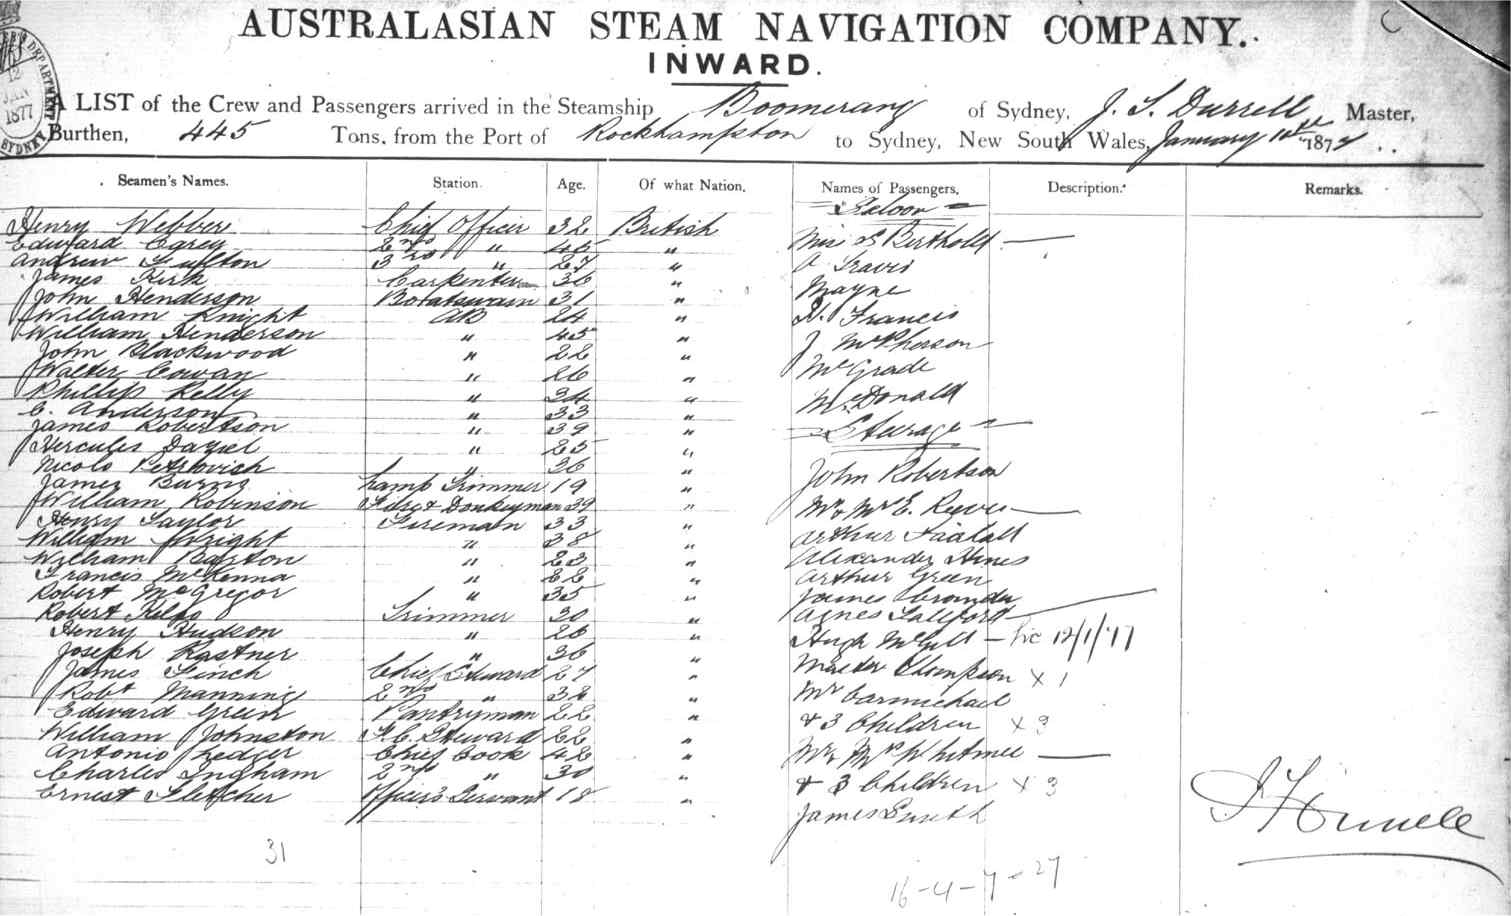 AUSTRALASIAN STEAM NAVIGATION COMPANY.
INWARD.
12 JAN 1877
SYDNEY
A LIST of the Crew and Passengers arrived in the Steamship Boomerang of Sydney, J. S. Durrell Master,
Burthen, 445 Tons, from the Port of Rockhampton to Sydney, New South Wales, January 187
Seamen's Names. Station. Age. Of what Nation. Names of Passengers. Description. Remarks.
Saloon
Henry Webber Chief Officer 32 British
Edward Carey 2nd " 45 "
Andrew Fulton 3rd " 27 "
James Kirk Carpenter 36 "
John Henderson Boatswain 31 "
William Knight AB 24 "
William Henderson " 45 "
John Blackwood " 22 "
Walter Cowan " 26 "
Phillip Kelly " 34 "
C. Anderson " 33 "
James Robertson " 39 "
Hercules Daziel " 25 "
Nicolo Petrovich " 36 "
James Burns Lamp Trimmer 19 "
William Robinson Donkeyman 39 "
Henry Taylor Fireman 33 "
William Wright " 38 "
William Barton " 23 "
Francis McKenna " 22 "
Robert McGregor " 35 "
Robert Trimmer 30 "
Henry Hudson " 26 "
Joseph Kastner " 36 "
James Finch Chief Steward 27 "
Robt Manning 2nd " 32 "
Edward Green Pantryman 22 "
William Johnston F.C. Steward 22 "
Antonio Ledger Chief Cook 42 "
Charles Ingham 2nd " 30 "
Ernest Fletcher Officers Servant 18 "
31
Berthold
A Travis
Mayne
Francis
J McPherson
McGrade
McDonald
Steerage
John Robertson
Mr & Mrs E. Reeves
Arthur
Alexander Hines
Arthur Green
James
Agnes
Hugh McGill 12/1/77
Master Thompson x 1
Mr Carmichael
& 3 Children x 3
Mr Mrs Whitmee
& 3 Children x 3
James Smith
16-4-7-27